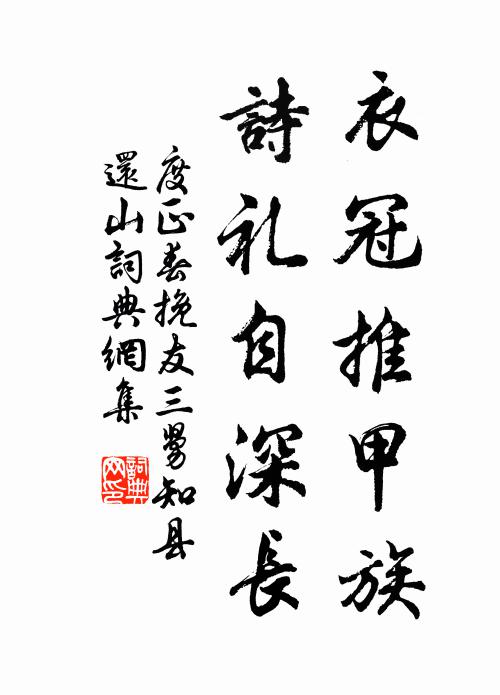 衣冠推甲族
詩礼自深長
度正奉挽友三舅知县
還山詞典網集
詞典
网印